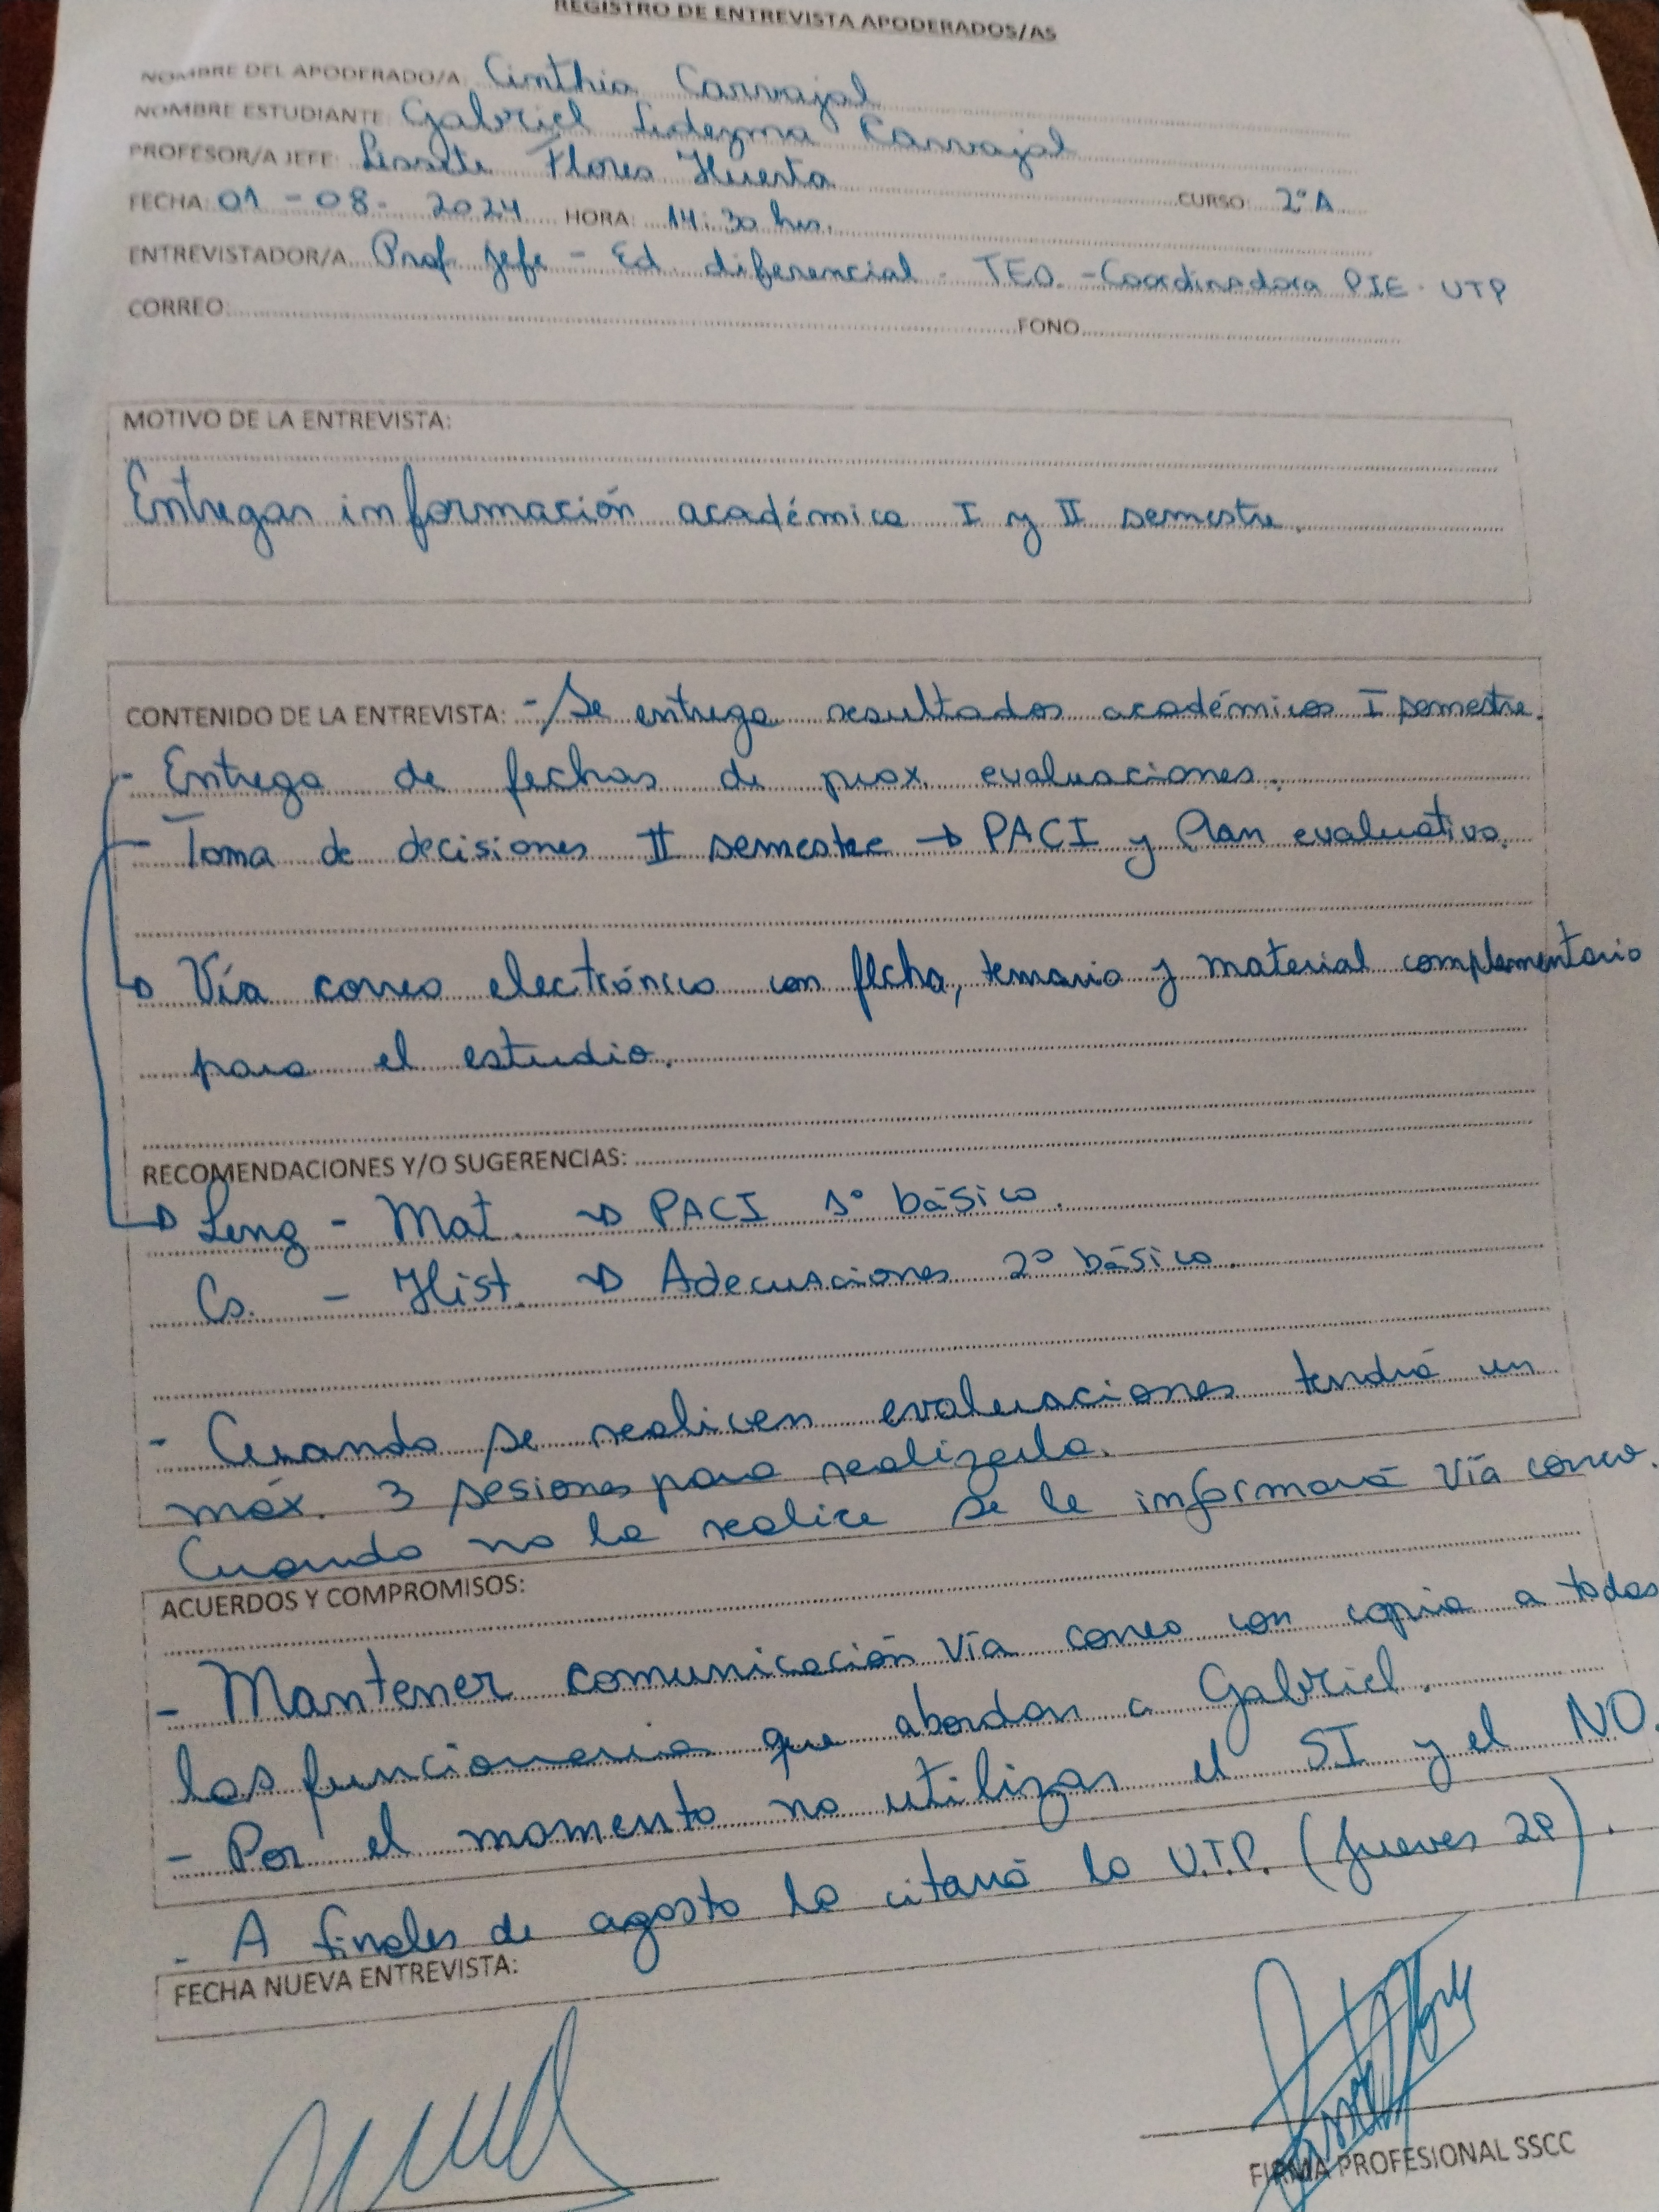 REGISTRO DE ENTREVISTA APODERADOS/AS
NOMBRE DEL APODERADO/A: Cinthia Carvajal
NOMBRE ESTUDIANTE: Gabriel Ledezma Carvajal
PROFESOR/A JEFE: Lissette Flores Huerta
CURSO: 2°A
FECHA: 01 - 08 - 2024 HORA: 14:30 hrs.
ENTREVISTADOR/A. Prof. Jefe - Ed. diferencial - TEO. - Coordinadora PIE - UTP
CORREO: FONO
MOTIVO DE LA ENTREVISTA:
Entregar información académica I y II semestre.
CONTENIDO DE LA ENTREVISTA: - Se entrega resultados académicos I semestre.
- Entrega de fechas de prox. evaluaciones.
- Toma de decisiones II semestre → PACI y Plan evaluativo.
→ Vía correo electrónico con fecha, temario y material complementario
para el estudio.
RECOMENDACIONES Y/O SUGERENCIAS:
→ Leng - Mat. → PACI 1° básico.
Cs. - Hist. → Adecuaciones 2° básico.
- Cuando se realicen evaluaciones tendrá un
máx. 3 sesiones para realizarla.
Cuando no la realice se le informará vía correo.
ACUERDOS Y COMPROMISOS:
- Mantener comunicación vía correo con copia a todos
los funcionarios que abordan a Gabriel.
- Por el momento no utilizar el SI y el NO.
- A finales de agosto la citará la U.T.P. (Jueves 29).
FECHA NUEVA ENTREVISTA:
FIRMA PROFESIONAL SSCC